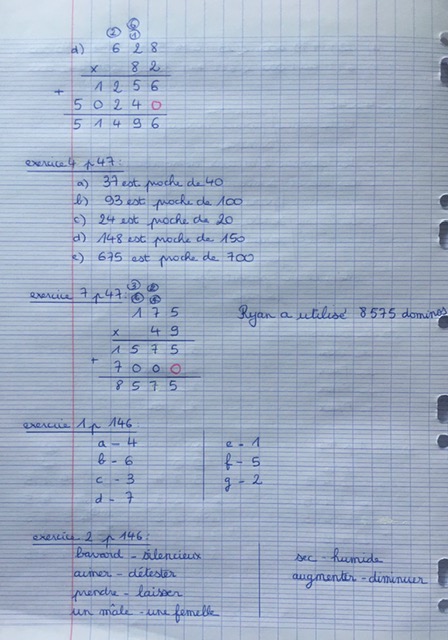 ② ⑥
①
d) 6 2 8
x 8 2
+ 1 2 5 6
5 0 2 4 0
5 1 4 9 6
exercice 4 p 47 :
a) 37 est proche de 40
b) 93 est proche de 100
c) 24 est proche de 20
d) 148 est proche de 150
e) 675 est proche de 700
exercice 7 p 47 :
1 7 5 Ryan a utilisé 8 575 dominos
x 4 9
+ 1 5 7 5
7 0 0 0
8 5 7 5
exercice 1 p 146 :
a - 4
b - 6
c - 3
d - 7
e - 1
f - 5
g - 2
exercice 2 p 146 :
bavard - silencieux
aimer - détester
prendre - laisser
un mâle - une femelle
sec - humide
augmenter - diminuer